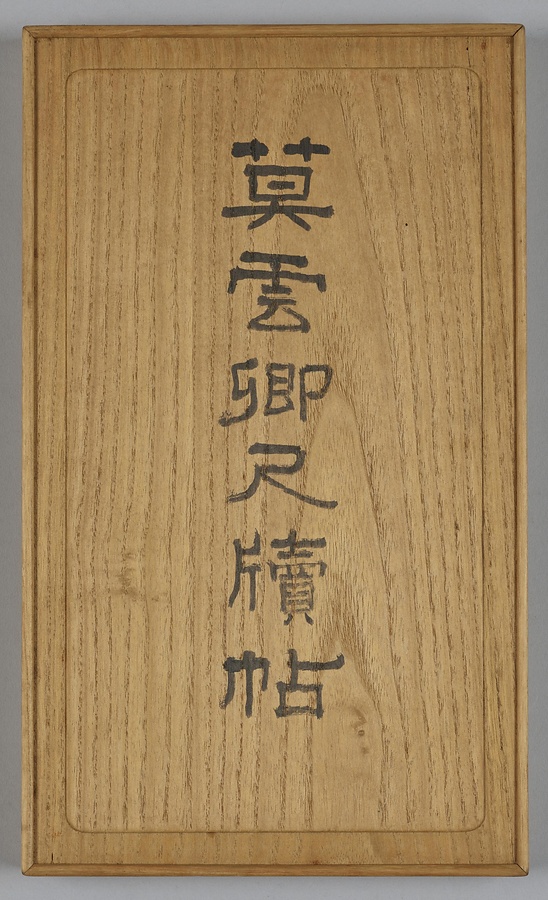 莫雲卿尺牘帖